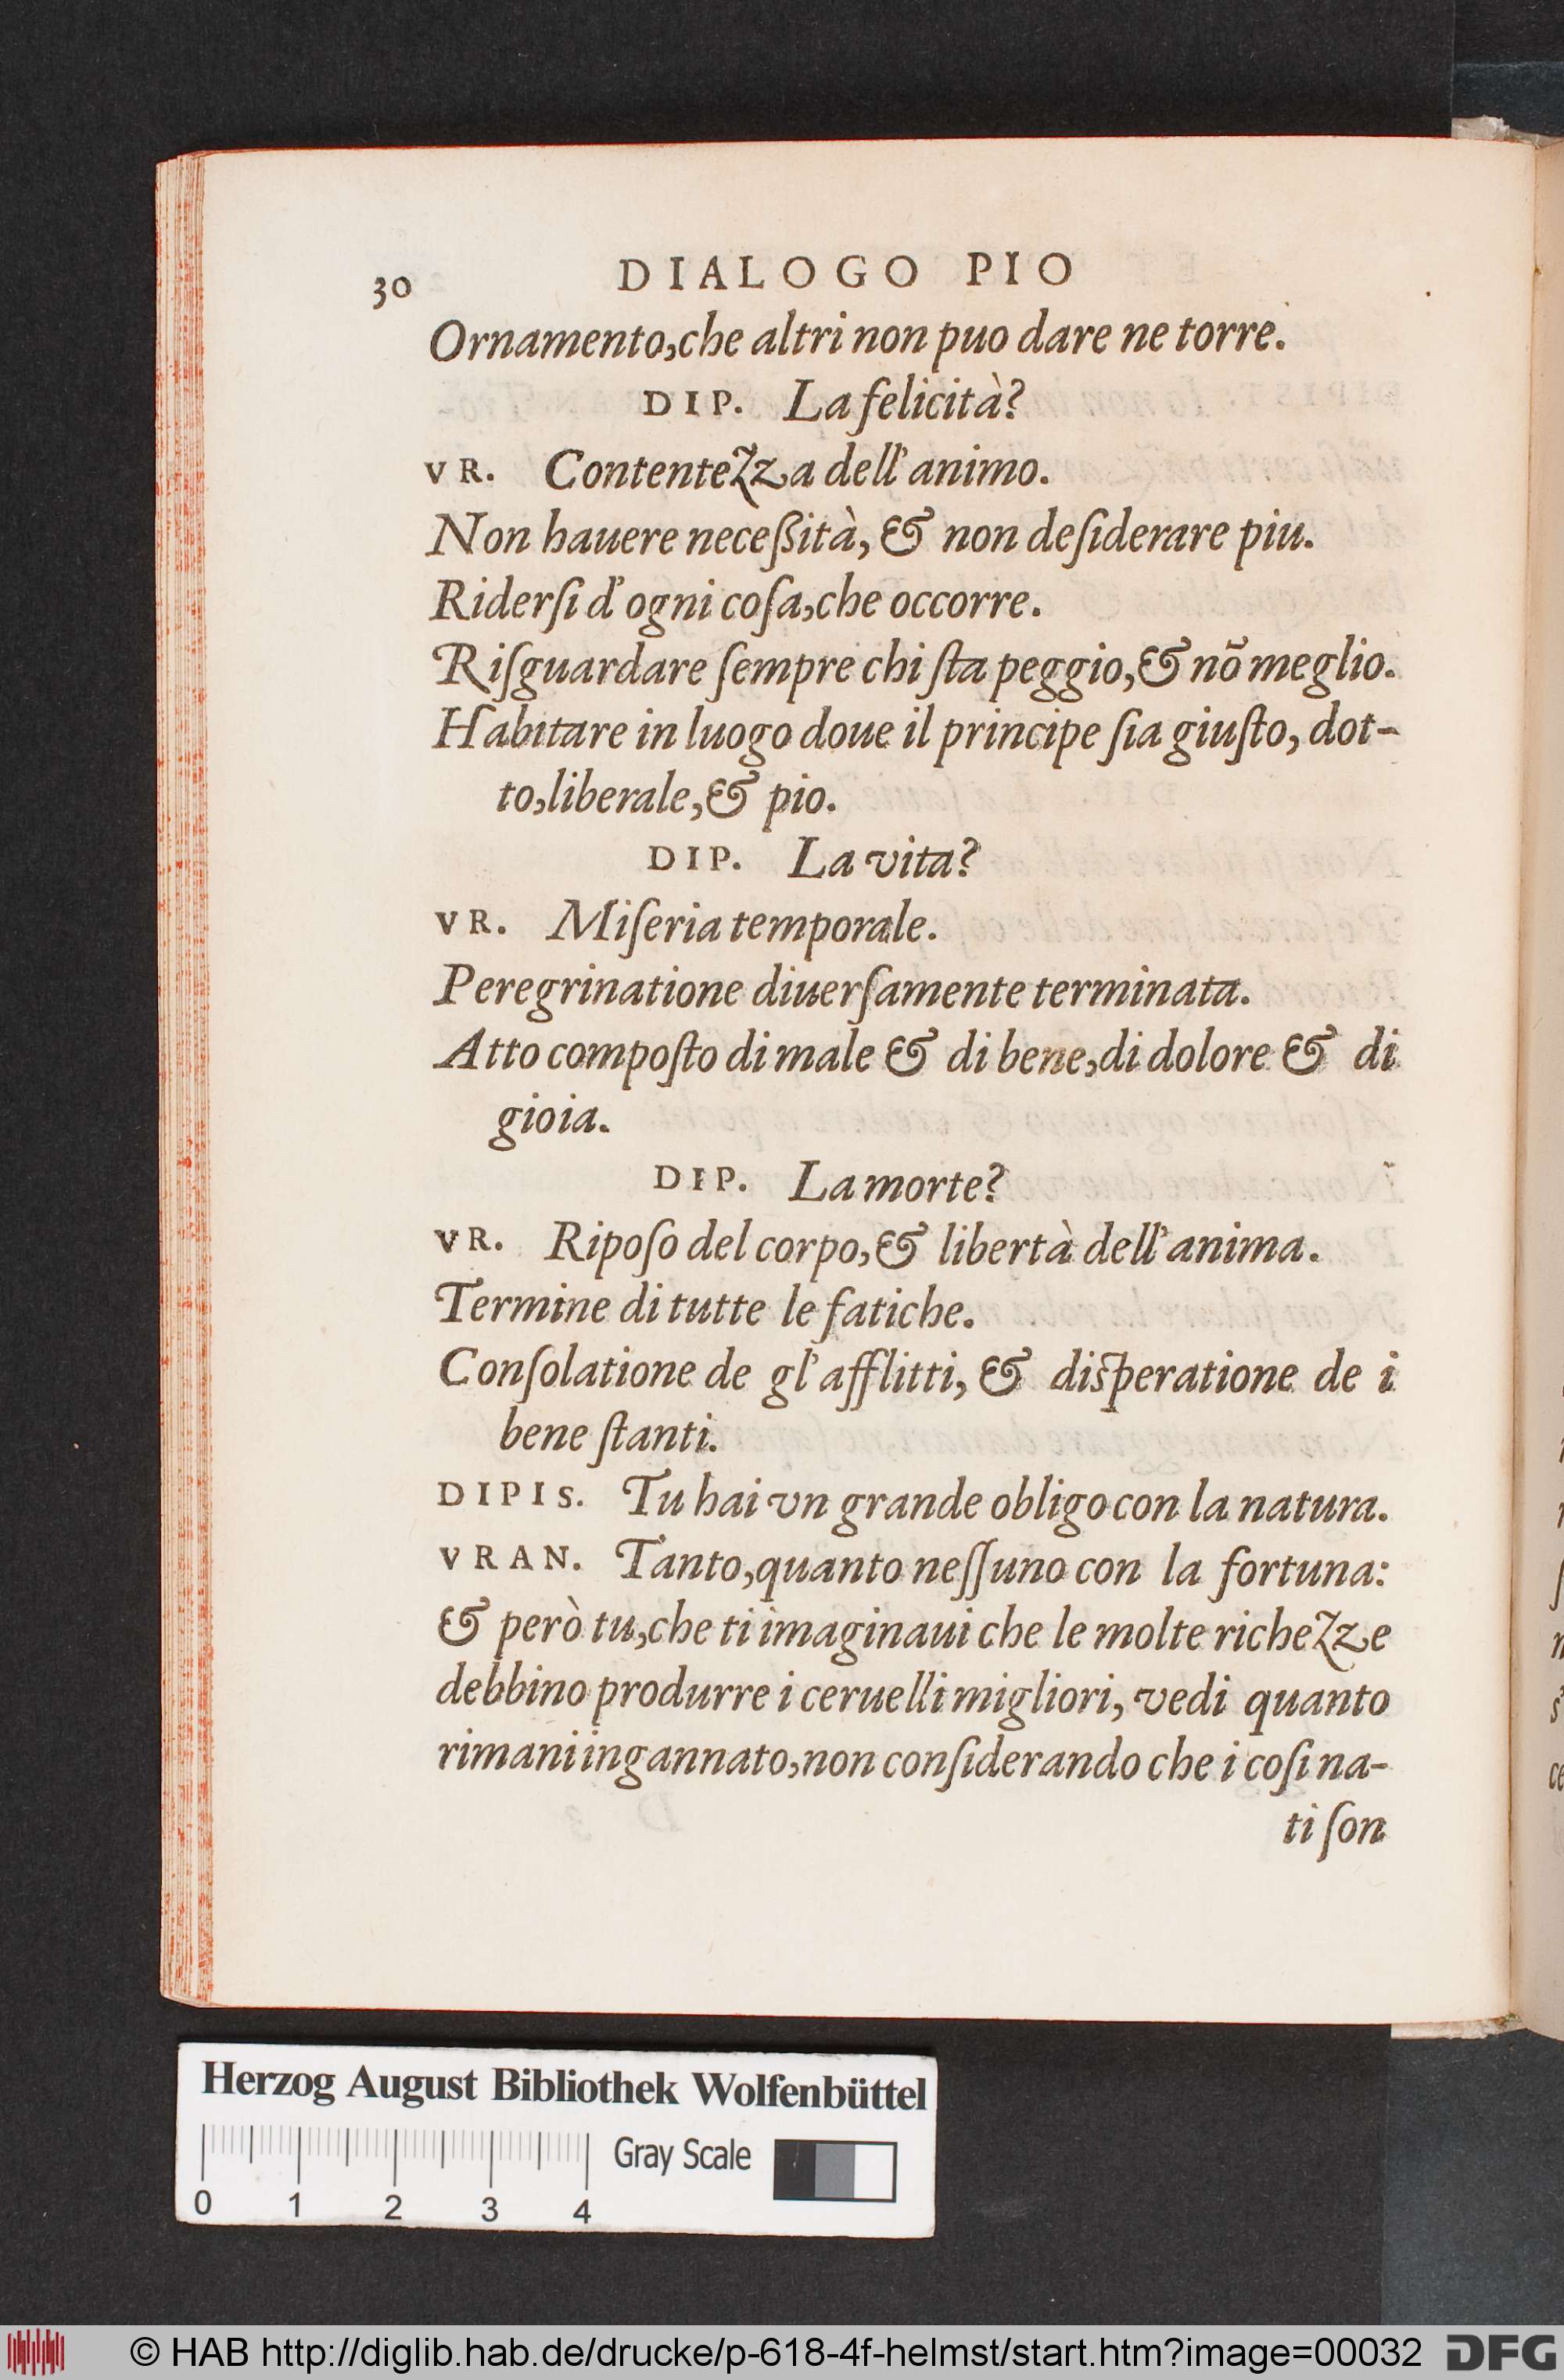 30 DIALOGO PIO
Ornamento,che altri non puo dare ne torre.
DIP. La felicità?
VR. Contentezza dell'animo.
Non hauere neceßità, & non deſiderare piu.
Riderſi d'ogni coſa,che occorre.
Riſguardare ſempre chi ſta peggio,& nõ meglio.
Habitare in luogo doue il principe ſia giuſto, dot-
to,liberale,& pio.
DIP. La vita?
VR. Miſeria temporale.
Peregrinatione diuerſamente terminata.
Atto compoſto di male & di bene,di dolore & di
gioia.
DIP. La morte?
VR. Ripoſo del corpo,& libertà dell'anima.
Termine di tutte le fatiche.
Conſolatione de gl'afflitti, & diſperatione de i
bene ſtanti.
DIPIS. Tu hai vn grande obligo con la natura.
VRAN. Tanto,quanto neſſuno con la fortuna:
& però tu,che ti imaginaui che le molte richezze
debbino produrre i ceruelli migliori, vedi quanto
rimani ingannato,non conſiderando che i coſi na-
ti ſon
Herzog August Bibliothek Wolfenbüttel
Gray Scale
0 1 2 3 4
© HAB http://diglib.hab.de/drucke/p-618-4f-helmst/start.htm?image=00032 DFG